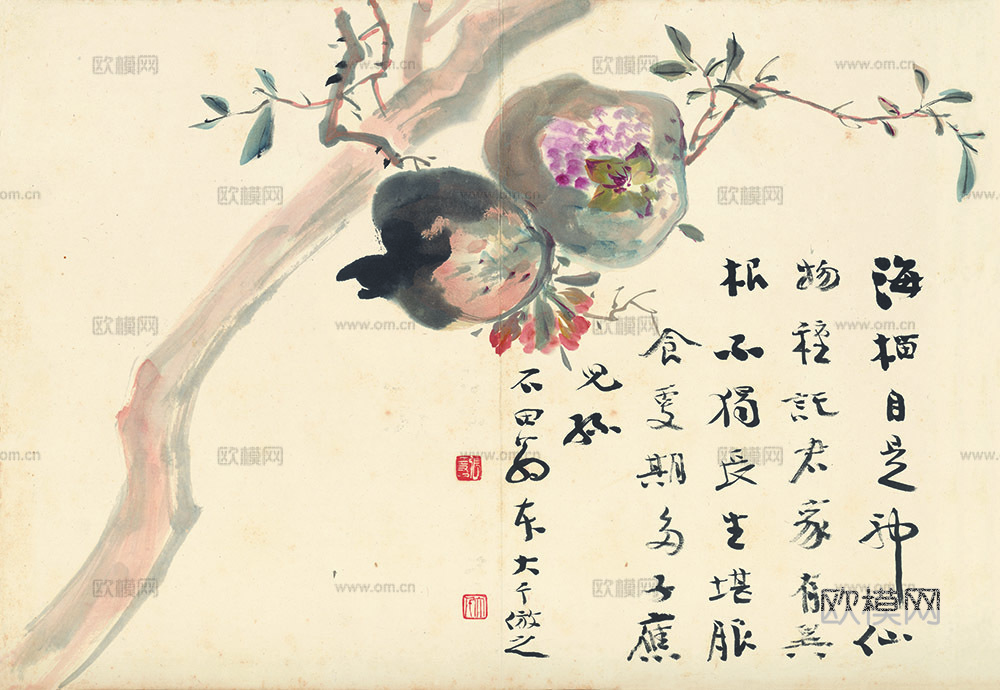 海榴自是神仙
物種託君家有異
根不獨長生堪服
食更期多子應
兒孫
石田翁本大千倣之
欧模网 www.om.cn 欧模网 www.om.cn
om.cn 欧模网 www.om.cn 欧模网 www.
欧模网 www.om.cn 欧模网 www.om.cn
om.cn 欧模网 www.om.cn 欧模网 www.
欧模网 www.om.cn 欧模网
欧模网